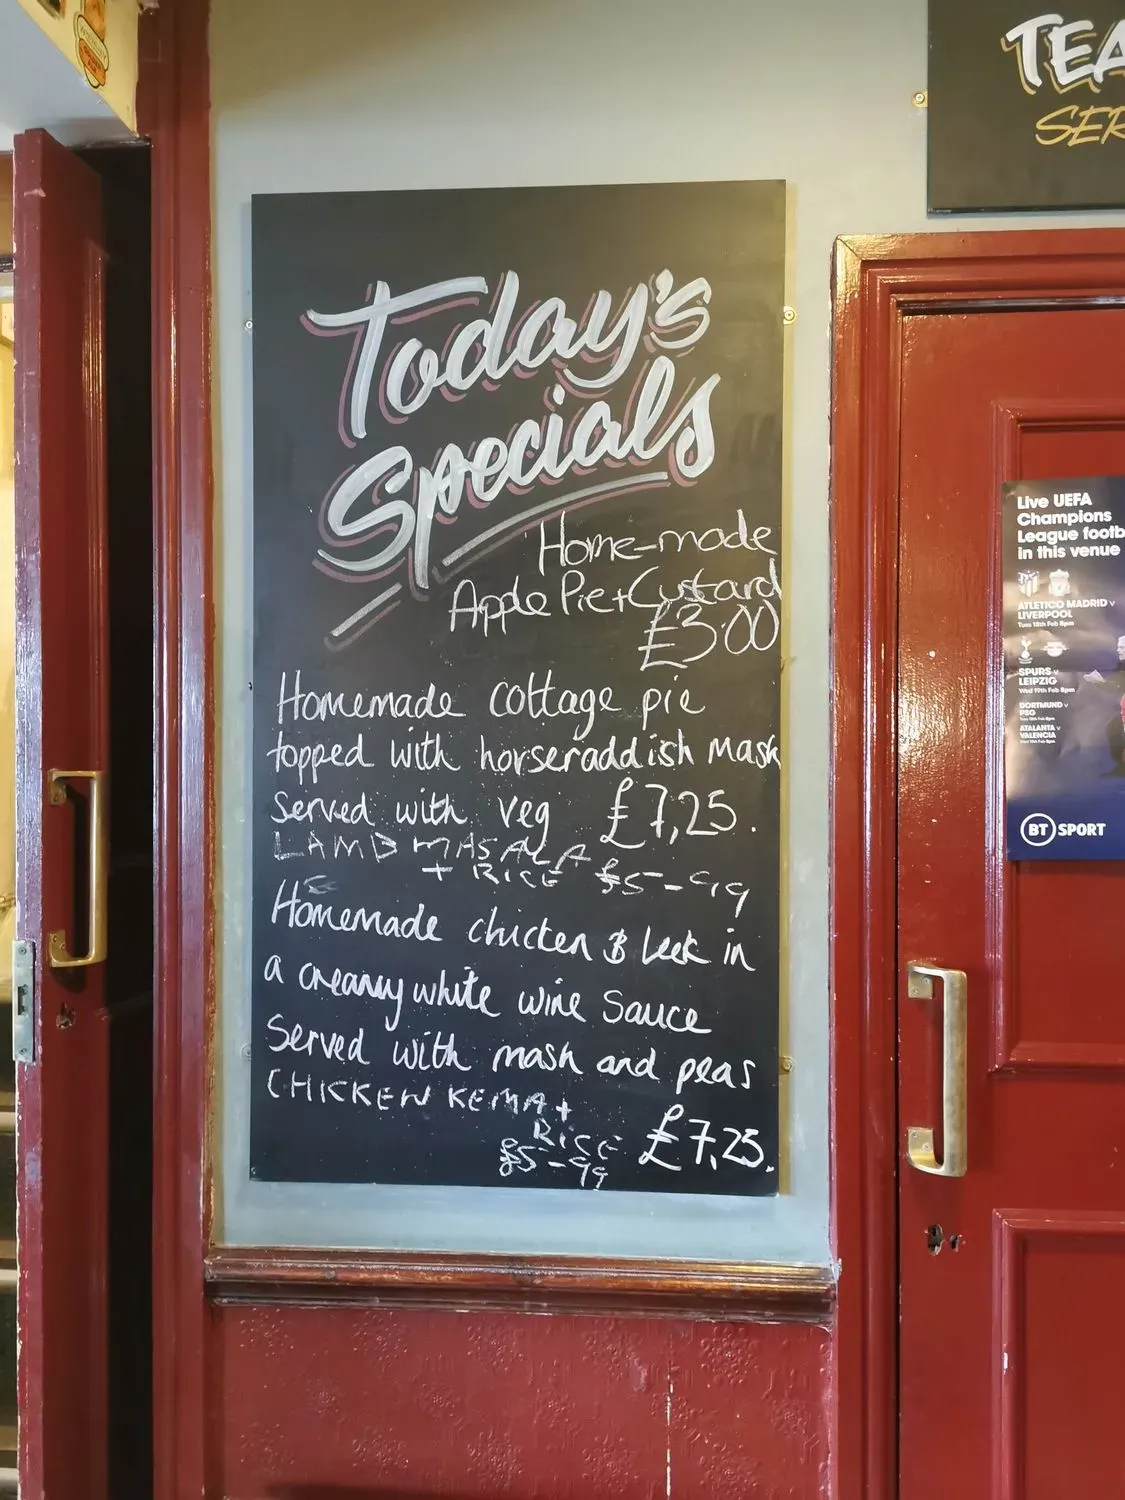 Today's
Specials
Home-made
Apple Pie+Custard
£3.00
Homemade cottage pie
topped with horseraddish mash
Served with veg £7,25.
LAMB MASALA
+ RICE £5-99
Homemade chicken & leek in
a creamy white wine sauce
Served with mash and peas
CHICKEN KEMA +
RICE £7,25.
£5-99
TEA
SER
Live UEFA
Champions
League footb
in this venue
ATLETICO MADRID v
LIVERPOOL
Tues 18th Feb 8pm
SPURS v
LEIPZIG
Wed 19th Feb 8pm
DORTMUND v
PSG
Tues 18th Feb 8pm
ATALANTA v
VALENCIA
Wed 19th Feb 8pm
BT SPORT